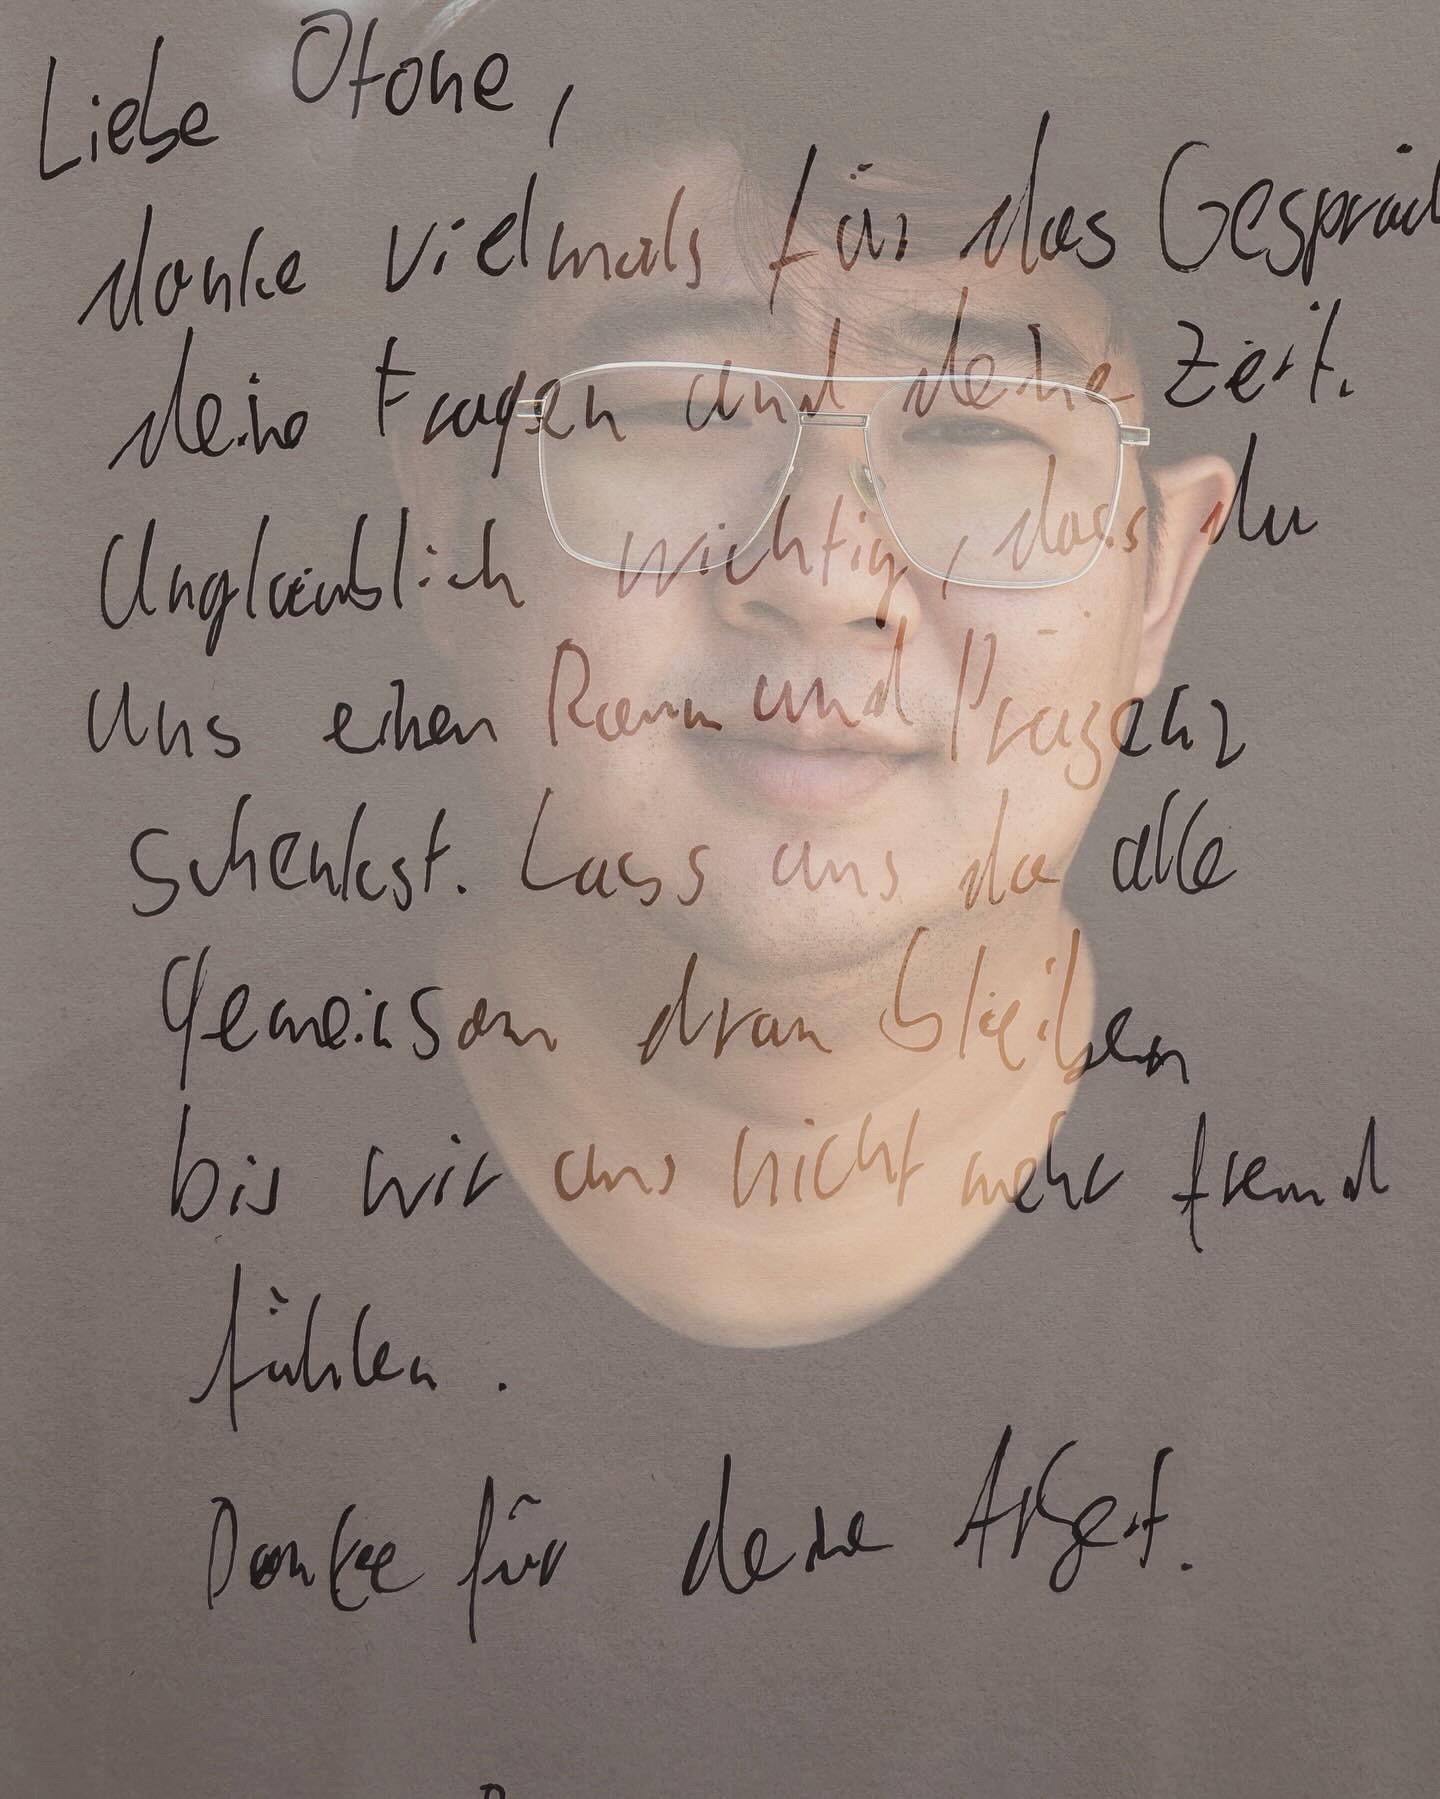 Liebe Otone,
danke vielmals für das Gespräch
deine Fragen und deine Zeit.
Unglaublich wichtig, dass du
uns einen Raum und Präzenz
schenkst. Lass uns da alle
gemeinsam dran bleiben
bis wir uns nicht mehr fremd
fühlen.
Danke für deine Arbeit.